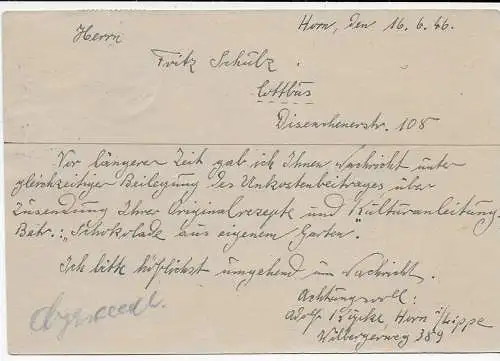 Horn, den 16.6.46.
Herrn
Fritz Schulz.
Cottbus
Disenchenerstr. 108
Vor längerer Zeit gab ich Ihnen Nachricht unter
gleichzeitiger Beilegung des Unkostenbeitrages über
Zusendung Ihrer Originalrezepte und Kulturanleitung.
Betr.: "Schokolade aus eigenem Garten."
Ich bitte höflichst umgehend um Nachricht.
Achtungsvoll:
Adolf Horn i/Lippe
Wilbergerweg 389